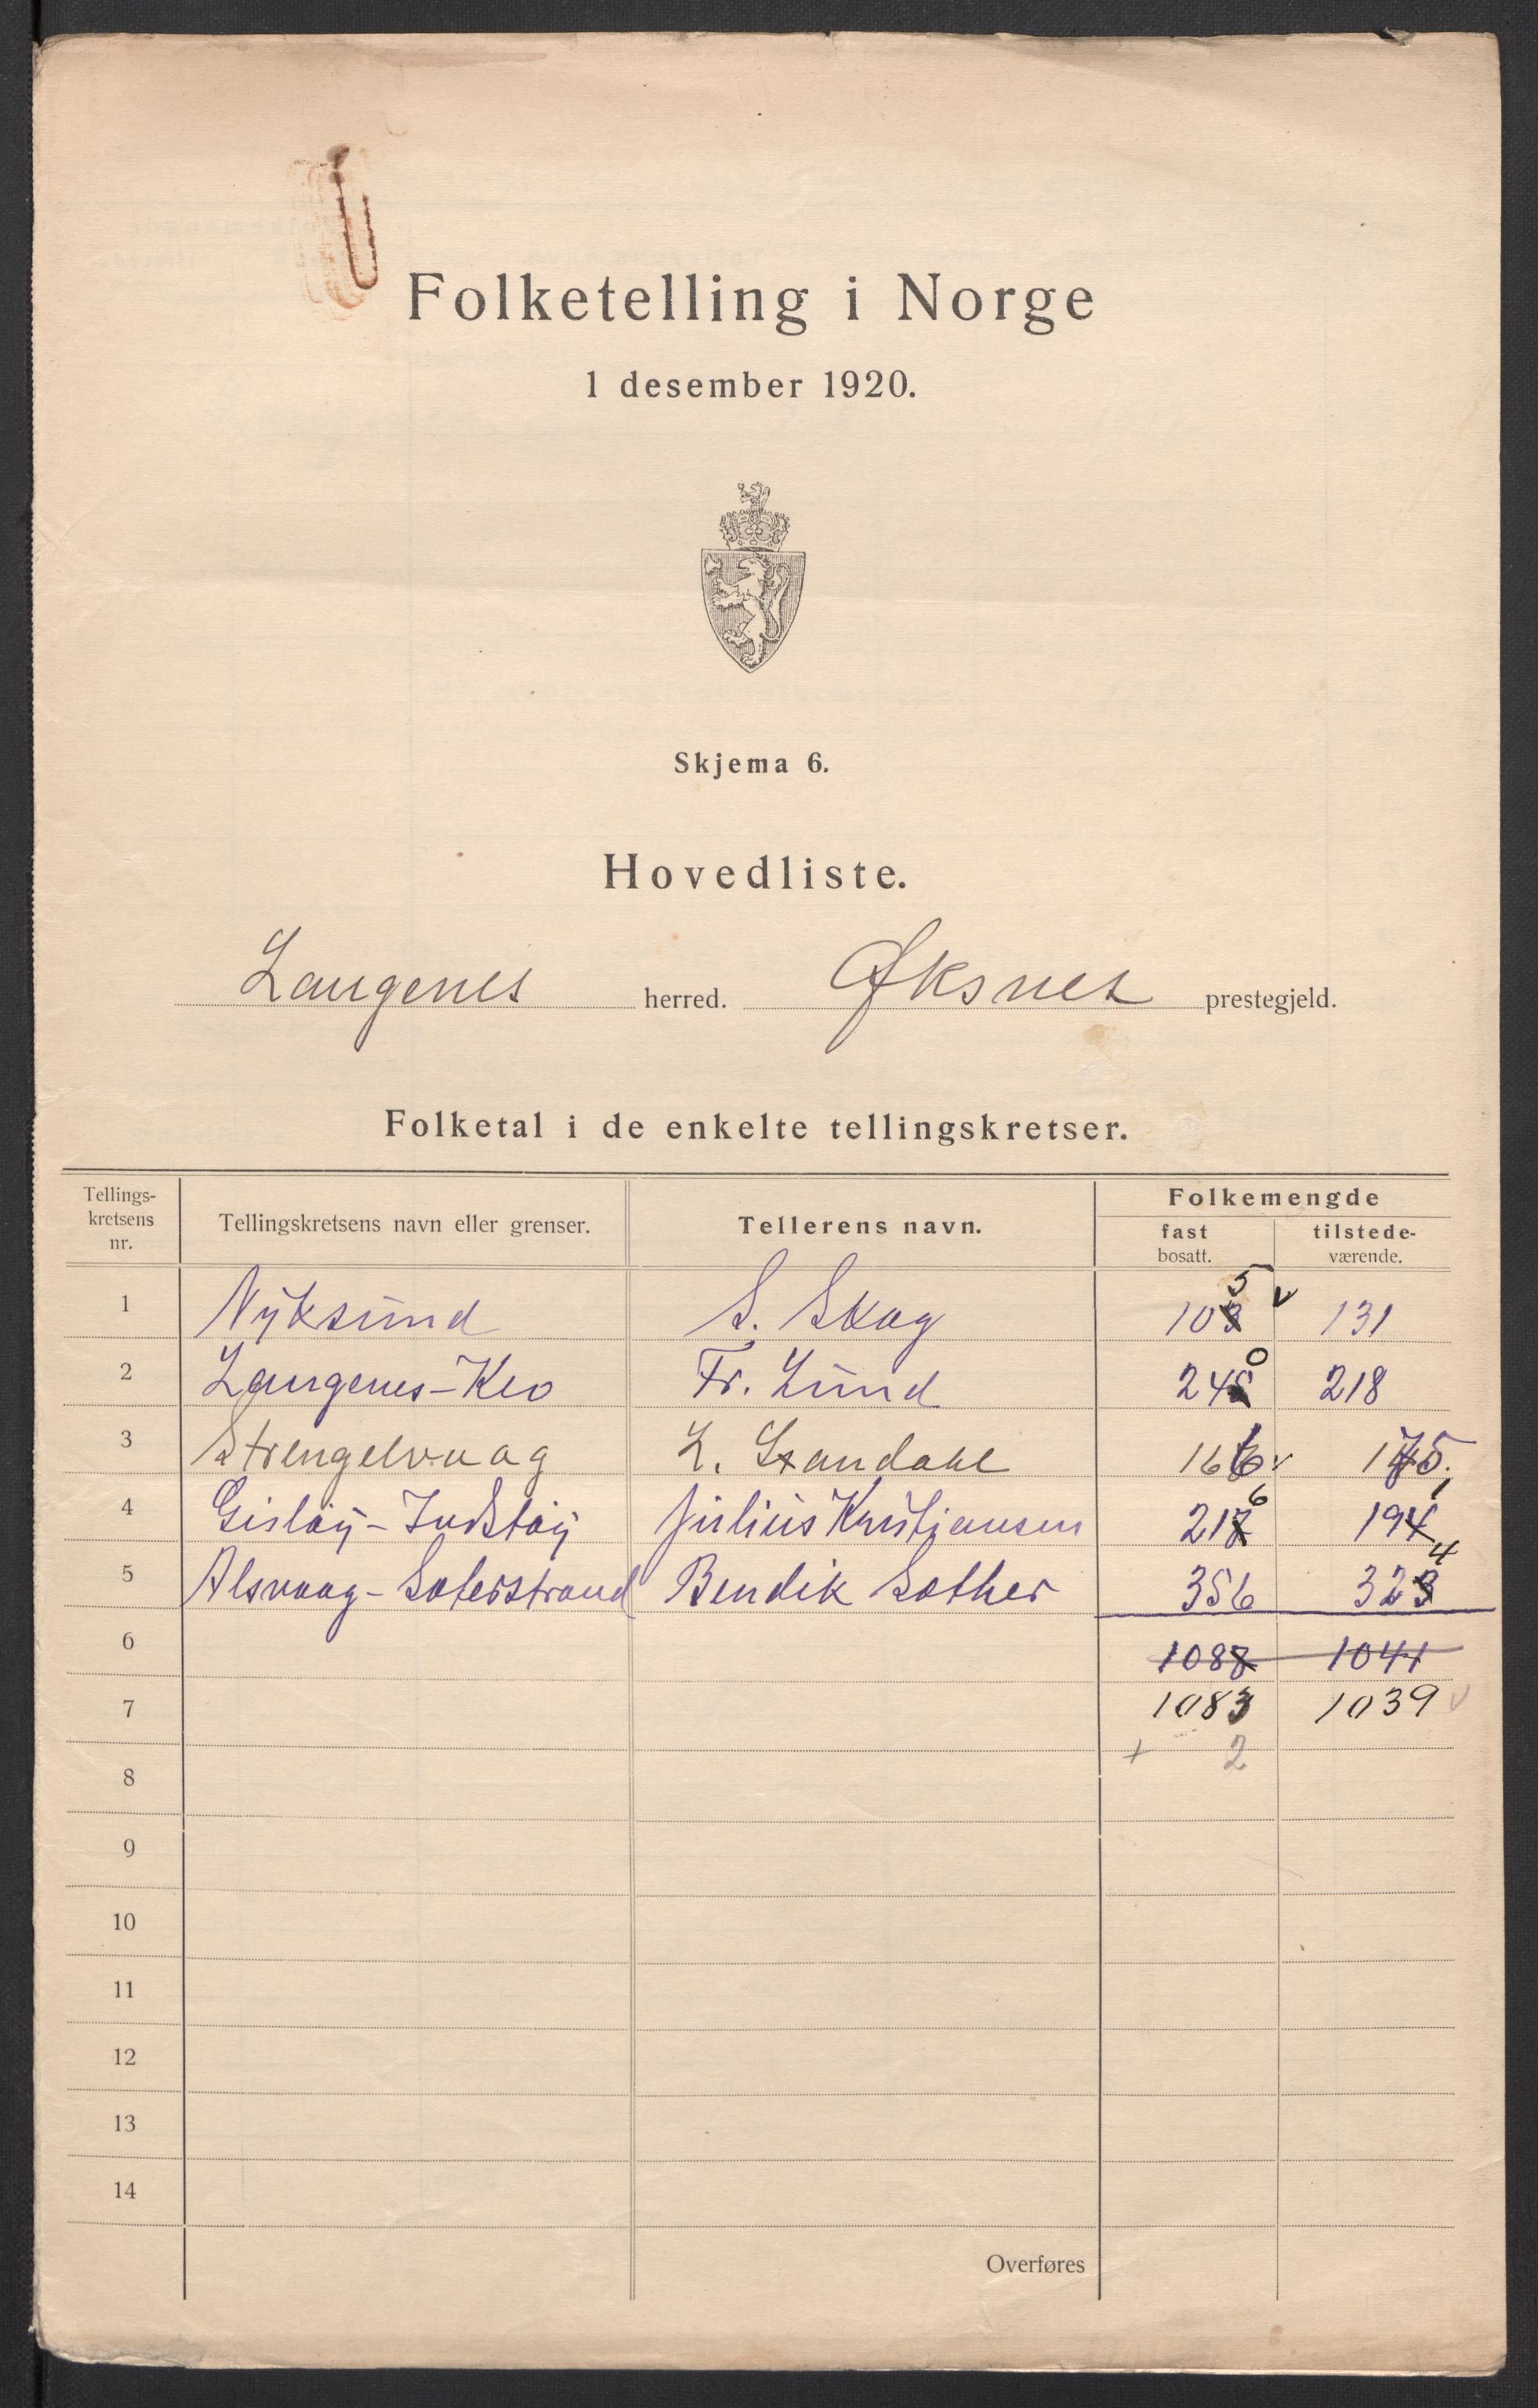 Folketelling i Norge
1 desember 1920.
Skjema 6.
Hovedliste.
Langenes herred. Øksnes prestegjeld.
Folketal i de enkelte tellingskretser.
Tellings-
kretsens
nr.
Tellingskretsens navn eller grenser.
Tellerens navn.
Folkemengde
fast
bosatt.
tilstede-
værende.
1 Nyksund S. Skog 103 5 v 131
2 Langenes-Klo Fr. Lund 245 0 218
3 Strengelvaag L. 166 v 175.
4 Gisløy- Julius Kristjansen 217 6 194 1
5 Alsvaag- Bendik Sæther 356 323 4
6 1087 1041
7 1083 1039 v
+ 2
8
9
10
11
12
13
14
Overføres